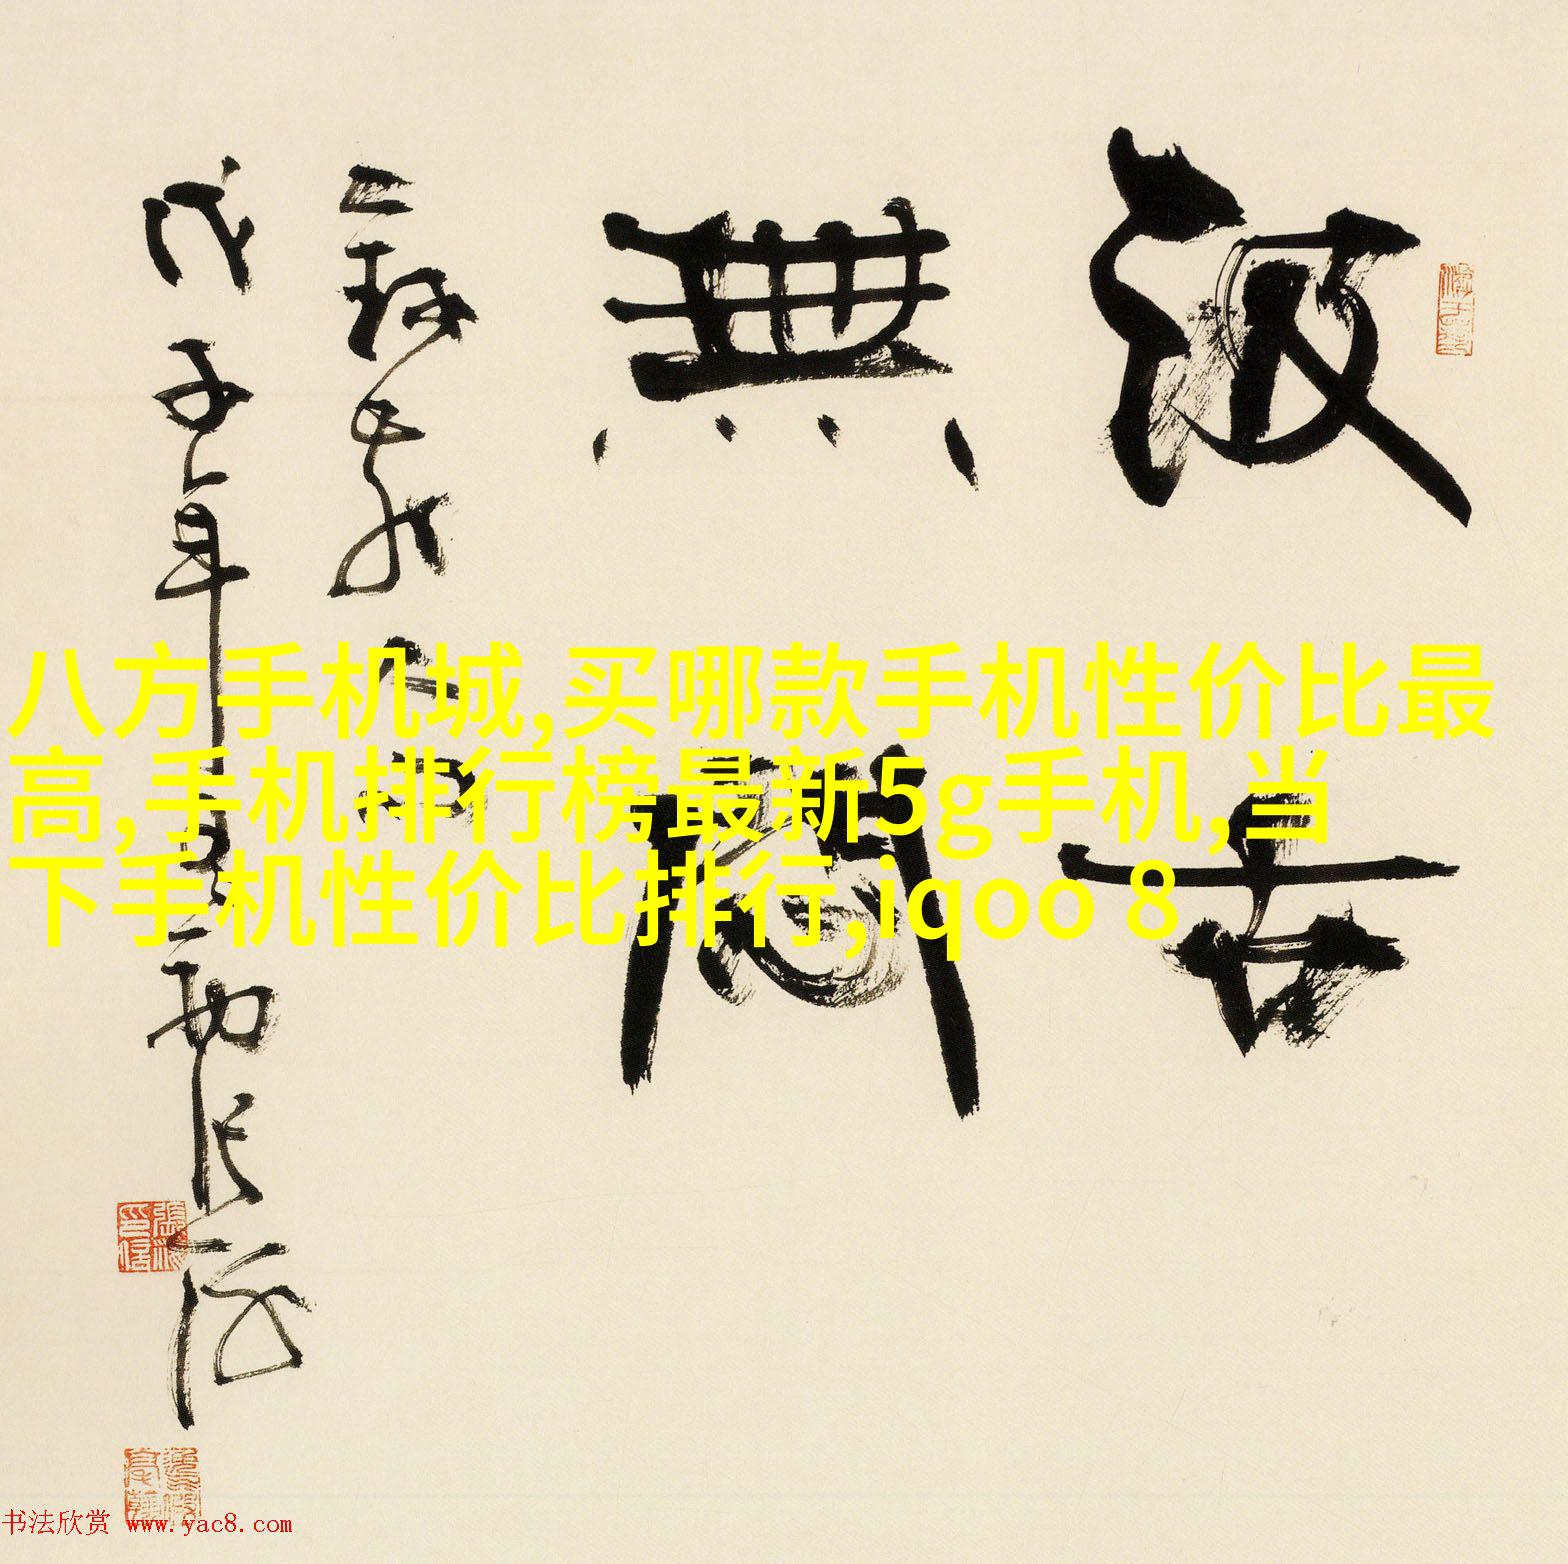 汲古
無悶
戊子年
八方手机城,买哪款手机性价比最
高,手机排行榜最新5g手机,当
下手机性价比排行,iqoo 8
張海印信
书法欣赏 www.yac8.com